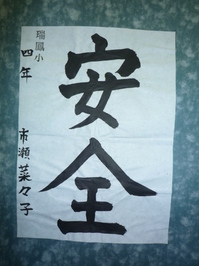 安全
瑞鳳小
四年
市瀬菜々子